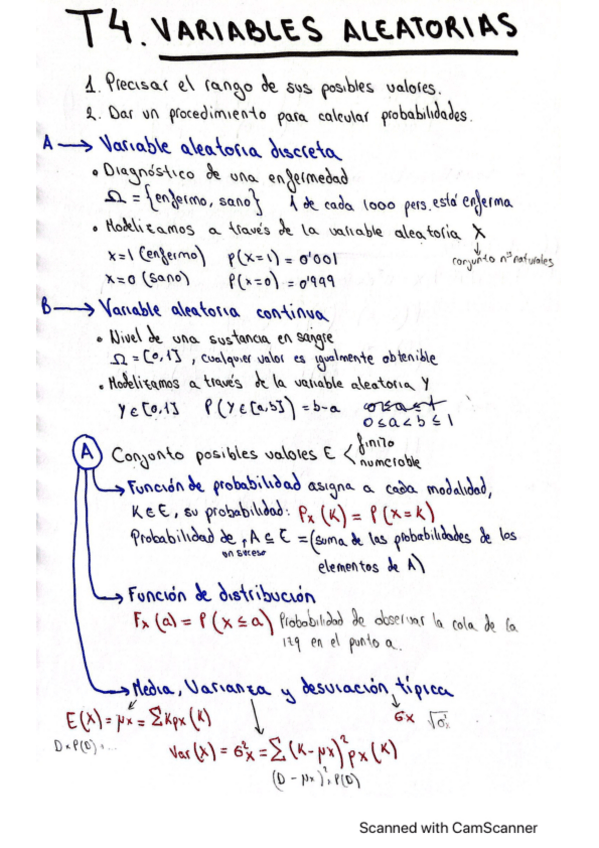 T4. VARIABLES ALEATORIAS
1. Precisar el rango de sus posibles valores.
2. Dar un procedimiento para calcular probabilidades.
A → Variable aleatoria discreta
• Diagnóstico de una enfermedad
Ω = {enfermo, sano} 1 de cada 1000 pers. está enferma
• Modelizamos a través de la variable aleatoria X
x=1 (enfermo) p(x=1) = 0'001
conjunto nos naturales
x=0 (sano) P(x=0) = 0'999
B → Variable aleatoria continua
• Nivel de una sustancia en sangre
Ω = [0,1] , cualquier valor es igualmente obtenible
• Modelizamos a través de la variable aleatoria Y
Y ∈ [0,1] P(Y ∈ [a,b]) = b-a
0 ≤ a < b ≤ 1
A Conjunto posibles valores E < finito
numerable
→ Función de probabilidad asigna a cada modalidad,
K ∈ E, su probabilidad: Px (K) = P(x=k)
Probabilidad de , A ⊆ E = (suma de las probabilidades de los
un suceso
elementos de A)
→ Función de distribución
Fx (a) = P (x ≤ a) Probabilidad de observar la cola de la
izq en el punto a.
→ Media, Varianza y desviación típica
E(X) = μx = Σ K px (K)
σx √σ²x
0 × P(0) + ...
Var (X) = σ²x = Σ (K - μx)² px (K)
(0 - μx)² × P(0)
Scanned with CamScanner